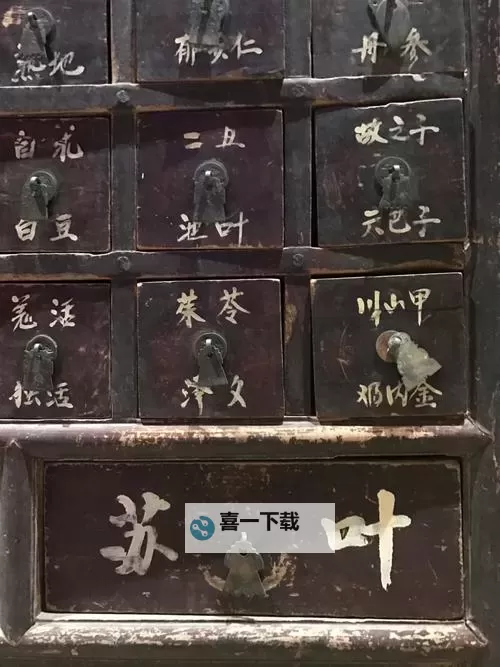 熟地
郁李仁
丹参
自求
白豆
二丑
泄叶
故之子
天巴子
羌活
独活
茱苓
泽文
川山甲
鸡内金
苏叶
喜一下载